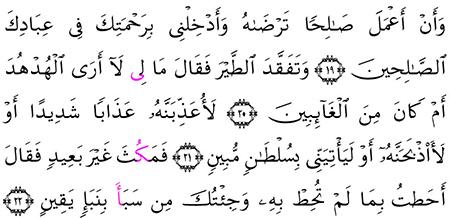 وَأَنْ أَعْمَلَ صَٰلِحًا تَرْضَىٰهُ وَأَدْخِلْنِى بِرَحْمَتِكَ فِى عِبَادِكَ
ٱلصَّٰلِحِينَ ﴿١٩﴾ وَتَفَقَّدَ ٱلطَّيْرَ فَقَالَ مَا لِىَ لَآ أَرَى ٱلْهُدْهُدَ
أَمْ كَانَ مِنَ ٱلْغَآئِبِينَ ﴿٢٠﴾ لَأُعَذِّبَنَّهُۥ عَذَابًا شَدِيدًا أَوْ
لَأَا۟ذْبَحَنَّهُۥٓ أَوْ لَيَأْتِيَنِّى بِسُلْطَٰنٍ مُّبِينٍ ﴿٢١﴾ فَمَكُثَ غَيْرَ بَعِيدٍ فَقَالَ
أَحَطتُ بِمَا لَمْ تُحِطْ بِهِۦ وَجِئْتُكَ مِن سَبَأَ بِنَبَإٍ يَقِينٍ ﴿٢٢﴾